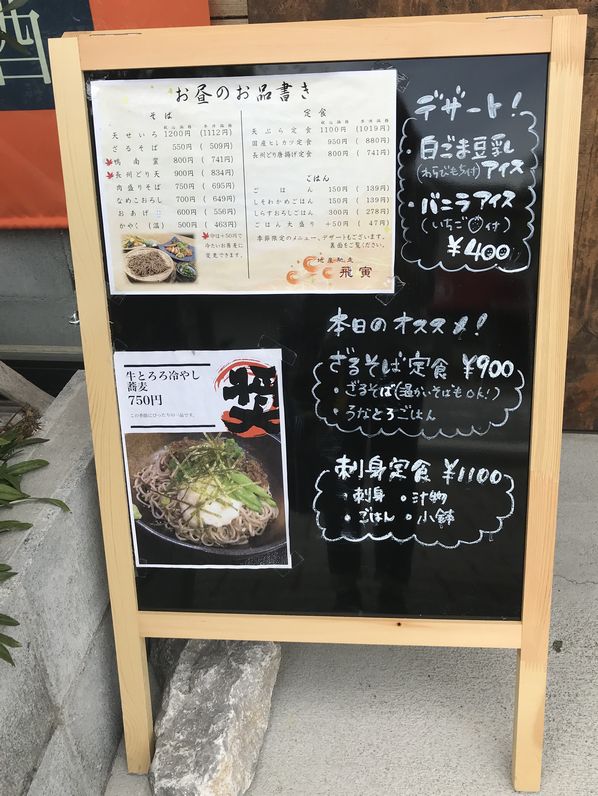 お昼のお品書き
そば
税込価格 本体価格
天せいろ 1200円 (1112円)
ざるそば 550円 (509円)
鴨南蛮 800円 (741円)
長州どり天 900円 (834円)
肉盛りそば 750円 (695円)
なめこおろし 700円 (649円)
おあげ 600円 (556円)
かやく (温) 500円 (463円)
印は+50円で
冷たいお蕎麦に
変更できます。
定食
税込価格 本体価格
天ぷら定食 1100円 (1019円)
国産ヒレカツ定食 950円 (880円)
長州どり唐揚げ定食 800円 (741円)
ごはん
ごはん 150円 (139円)
しそわかめごはん 150円 (139円)
しらすおろしごはん 300円 (278円)
ごはん大盛り +50円 (47円)
季節限定のメニュー、デザートもございます。
裏面をご覧ください。
地産馳走
飛寅
デザート!
・白ごま豆乳アイス
(わらびもち付)
・バニラアイス
(いちご付)
¥400
本日のオススメ!
ざるそば定食 ¥900
・ざるそば(温かいそばもOK!)
・うなとろごはん
刺身定食 ¥1100
・刺身 ・汁物
・ごはん ・小鉢
牛とろろ冷やし
蕎麦
750円
この季節にぴったりの一品です。